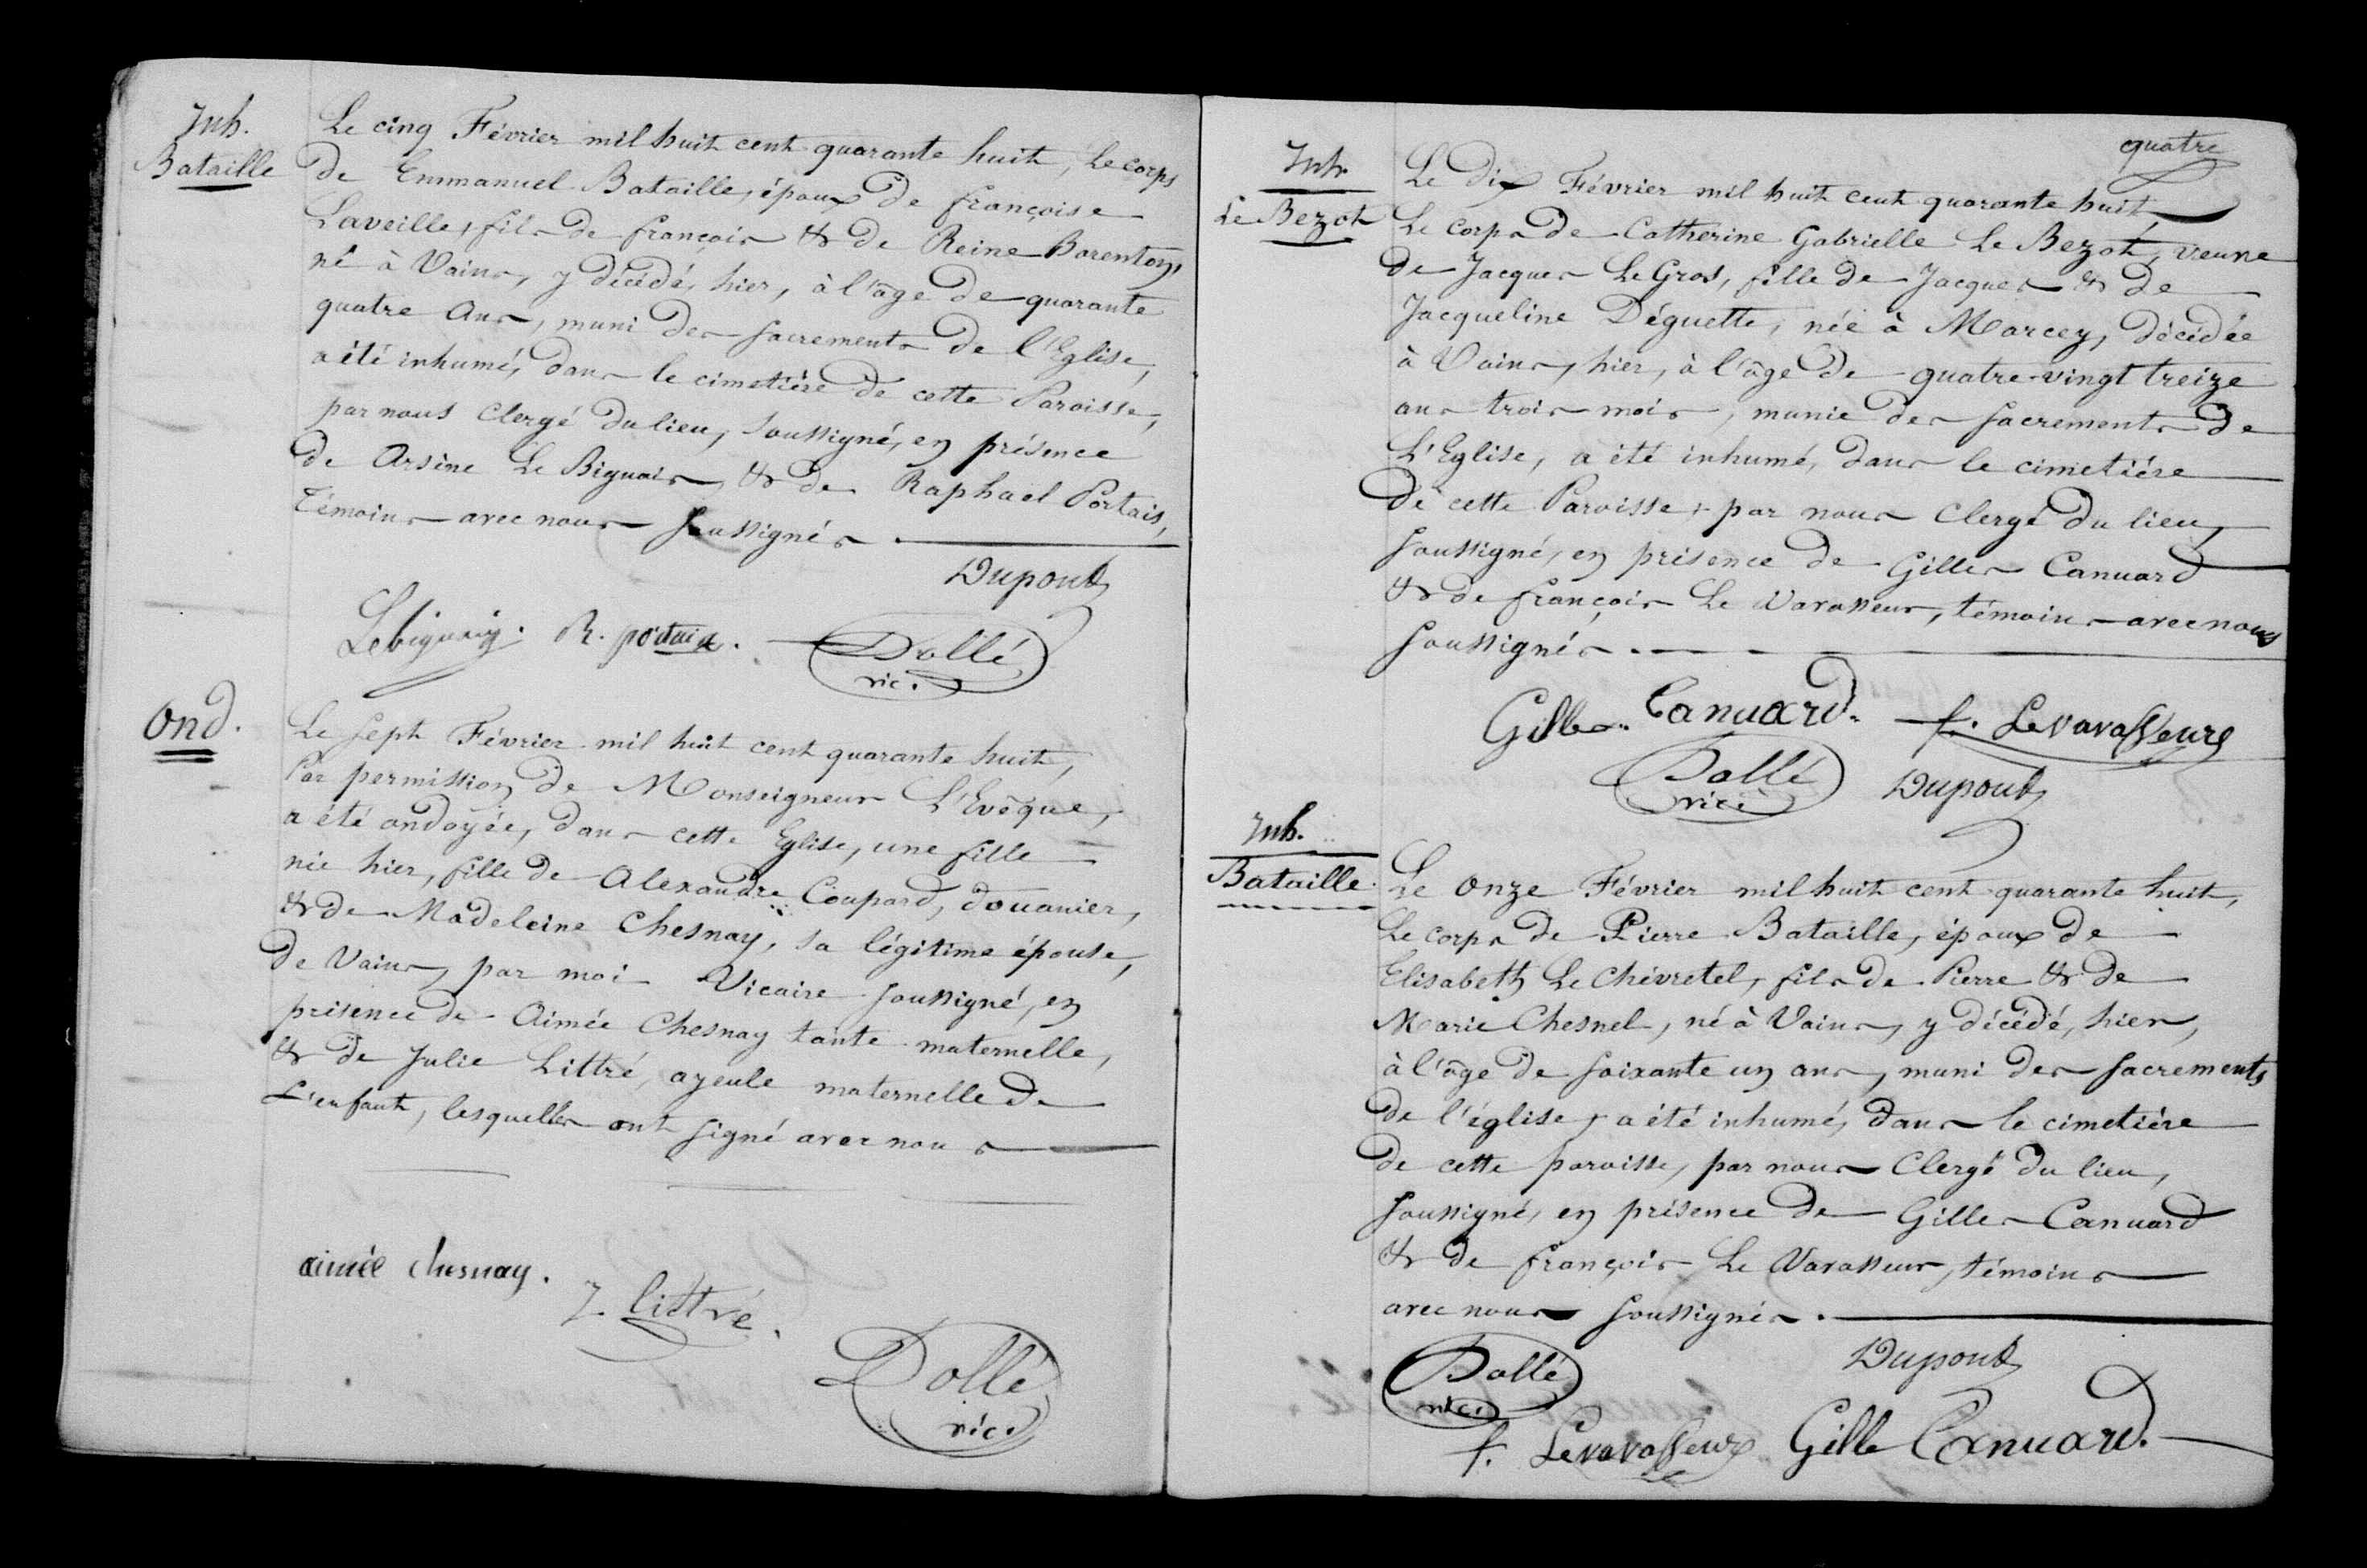 Inh.
Bataille
Le cinq Février mil huit cent quarante huit, Le corps
de Emmanuel Bataille, époux de françoise
Laveille, fils de françois & de Reine Barenton,
né à Vains, y décédé, hier, à l'âge de quarante
quatre ans, muni des sacrements de l'Eglise,
a été inhumé, dans le cimetière de cette Paroisse,
par nous Clergé du lieu, soussigné, en présence
de Arsène Le Biguais, & de Raphael Portais,
Témoins avec nous soussignés.
Dupont
Lebiguais. R. portais. Dollé
vic.
Ond.
Le sept Février mil huit cent quarante huit,
Par permission de Monseigneur L'Evêque,
a été ondoyée, dans cette Eglise, une fille
née hier, fille de Alexandre Coupard, douanier,
& de Madeleine Chesnay, sa légitime épouse,
de Vains, par moi Vicaire soussigné, en
présence de Aimée Chesnay tante maternelle,
& de Julie Littré, ayeule maternelle de
L'enfant, lesquelles ont signé avec nous
aimée chesnay.
J. littré.
Dollé
vic.
quatre
Inh.
Le Bezot
Le dix Février mil huit cent quarante huit,
Le corps de Catherine Gabrielle Le Bezot, veuve
de Jacques Le Gros, fille de Jacques & de
Jacqueline Déguette, née à Marcey, décédée
à Vains, hier, à l'âge de quatre-vingt treize
ans trois mois, munie des sacrements de
L'Eglise, a été inhumé, dans le cimetière
de cette Paroisse, par nous Clergé du lieu,
soussigné, en présence de Gilles Canuard
& de françois Le Vavasseur, témoins avec nous
soussignés.
Gilles Canuard. f. Levavasseur
Dollé Dupont
vic.
Inh.
Bataille.
Le onze Février mil huit cent quarante huit,
Le corps de Pierre Bataille, époux de
Elisabeth Le Chevretel, fils de Pierre & de
Marie Chesnel, né à Vains, y décédé, hier,
à l'âge de soixante un ans, muni des sacrements
de l'église, a été inhumé, dans le cimetière
de cette paroisse, par nous Clergé du lieu,
soussigné, en présence de Gilles Canuard
& de françois Le Vavasseur, témoins
avec nous soussignés.
Dollé Dupont
vic.
f. Levavasseur Gille Canuard.